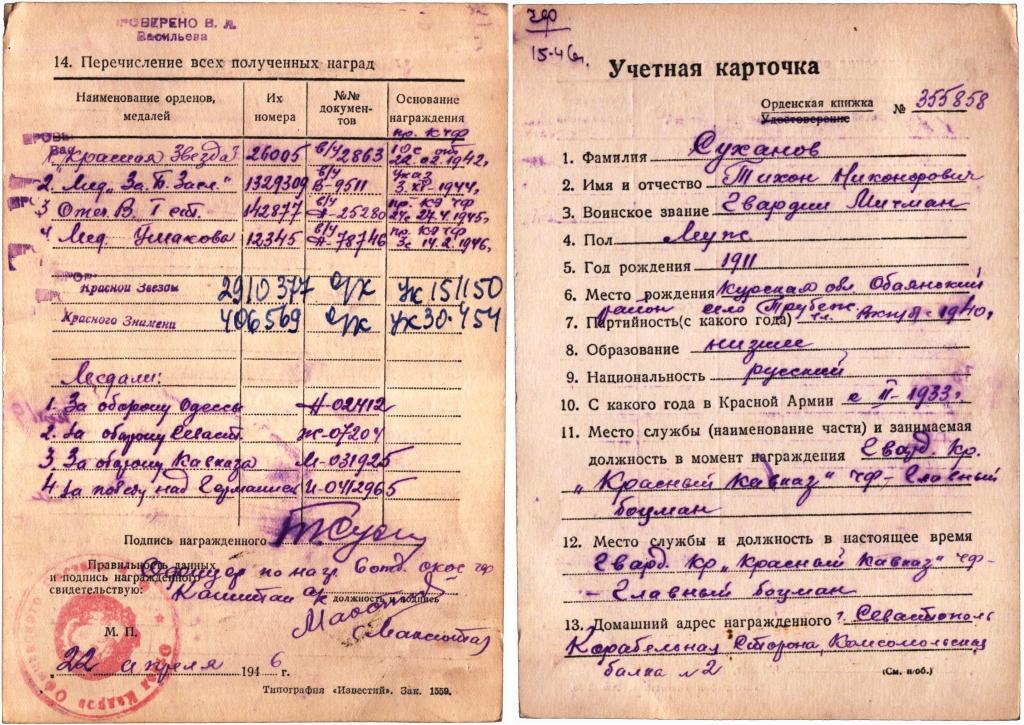 ПРОВЕРЕНО В. А.
Васильева
14. Перечисление всех полученных наград
Наименование орденов, медалей
Их номера
№№ документов
Основание награждения
1. "Красная Звезда" 26005 в/ч 2863 пр. КЧФ 10с от 22.02.1942г.
2. Мед. "За Б. Засл." 1329309 в/ч В-9511 Указ 3.XI-1944г.
3 Отеч. В. I ст. 142877 в/ч А-25280 пр. КЧФ 24с 27.4.1945г.
4 Мед. Ушакова 12345 в/ч А-78746 пр. КЧФ 3с 14.2.1946г.
Красной Звезды 2910377 о/к Ук 151150
Красного Знамени 406569 о/к Ук 30.454
Медали:
1. За оборону Одессы Н-02412
2. За оборону Севаст. Ж-07204
3. За оборону Кавказа М-031925
4. За победу над Германией И-0412965
Подпись награжденного
Правильность данных
и подпись награжденного
свидетельствую:
по нагр. 6 отд. ОКОС ЧФ
Капитан а/с
должность и подпись
М. П.
22 апреля 1946 г.
Типография «Известий». Зак. 1559.
ЧФ
15-46г.
Учетная карточка
Орденская книжка
Удостоверение
№ 355858
1. Фамилия Суханов
2. Имя и отчество Тихон Никонорович
3. Воинское звание Гвардии Мичман
4. Пол Муж
5. Год рождения 1911
6. Место рождения Курская обл Обаянский
район село Трубеж
7. Партийность (с какого года) чл. Октяб. 1940г.
8. Образование низшее
9. Национальность русский
10. С какого года в Красной Армии с II-1933г.
11. Место службы (наименование части) и занимаемая
должность в момент награждения Гвард. Кр.
"Красный Кавказ" ЧФ - Главный
боцман
12. Место службы и должность в настоящее время
Гвард. Кр "Красный Кавказ" ЧФ-
- Главный боцман
13. Домашний адрес награжденного г. Севастополь
Корабельная Сторона, Комсомольская
балка №2
(См. н/об.)